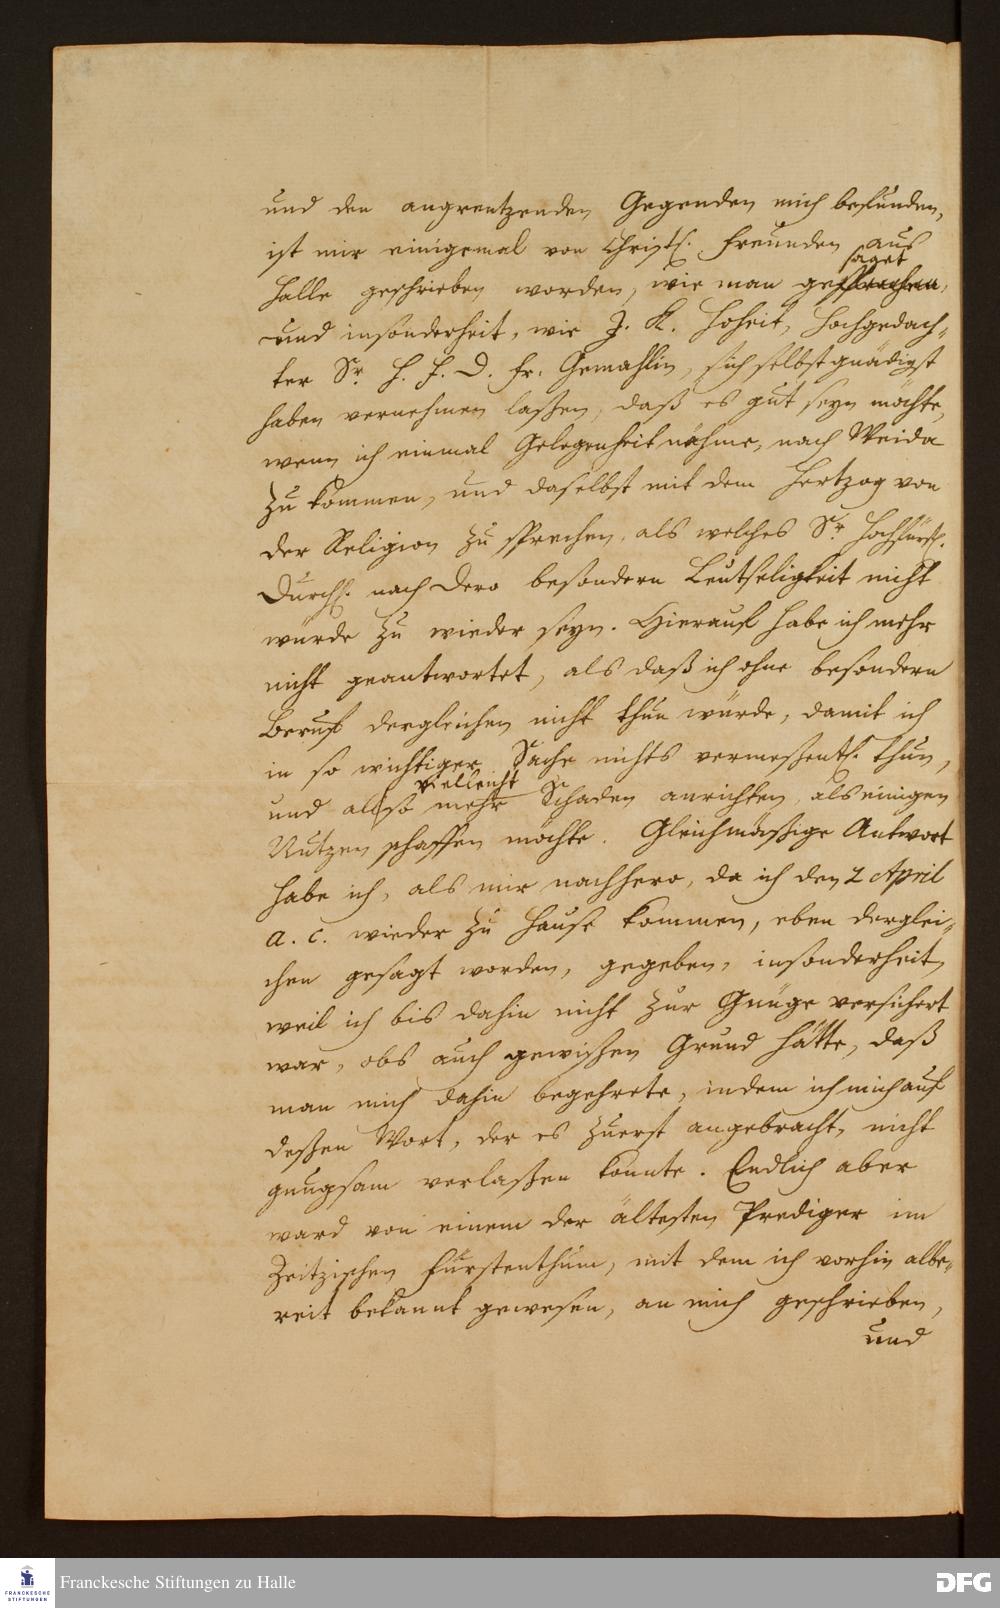 und den angrentzenden Gegenden mich befunden,
ist mir einigemal von Christl. Freunden aus
Halle geschrieben worden, wie man gesprochen, saget
und insonderheit, wie J. K. Hoheit, Hochgedach-
ter Sr. H. F. D. Fr. Gemahlin, sich selbst gnädigst
haben vernehmen laßen, daß es gut seyn möchte,
wenn ich einmal Gelegenheit nähme, nach Weida
zu kommen, und daselbst mit dem Hertzog von
der Religion zu sprechen, als welches Sr. Hochfürstl.
Durchl. nach Dero besondern Leutseligkeit nicht
würde zu wieder seyn. Hierauf habe ich mehr
nicht geantwortet, als daß ich ohne besondern
Beruff dergleichen nicht thun würde, damit ich
in so wichtiger Sache nichts vermeßentl. thun,
vielleicht
und also mehr Schaden anrichten, als einigen
Nutzen schaffen möchte. Gleichmäßige Antwort
habe ich, als mir nachhero, da ich den 2 April
a. c. wieder zu Hause kommen, eben derglei-
chen gesagt worden, gegeben, insonderheit,
weil ich bis dahin nicht zur Gnüge versichert
war, obs auch gewißen Grund hätte, daß
man mich dahin begehrete, indem ich mich auf
deßen Wort, der es zuerst angebracht, nicht
gnugsam verlaßen konnte. Endlich aber
ward von einem der ältesten Prediger im
Zeitzischen Fürstenthum, mit dem ich vorhin albe-
reit bekannt gewesen, an mich geschrieben,
und
Franckesche Stiftungen zu Halle
DFG
FRANCKESCHE
STIFTUNGEN